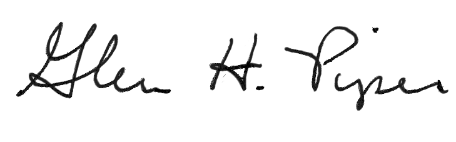 Glen H. Piper